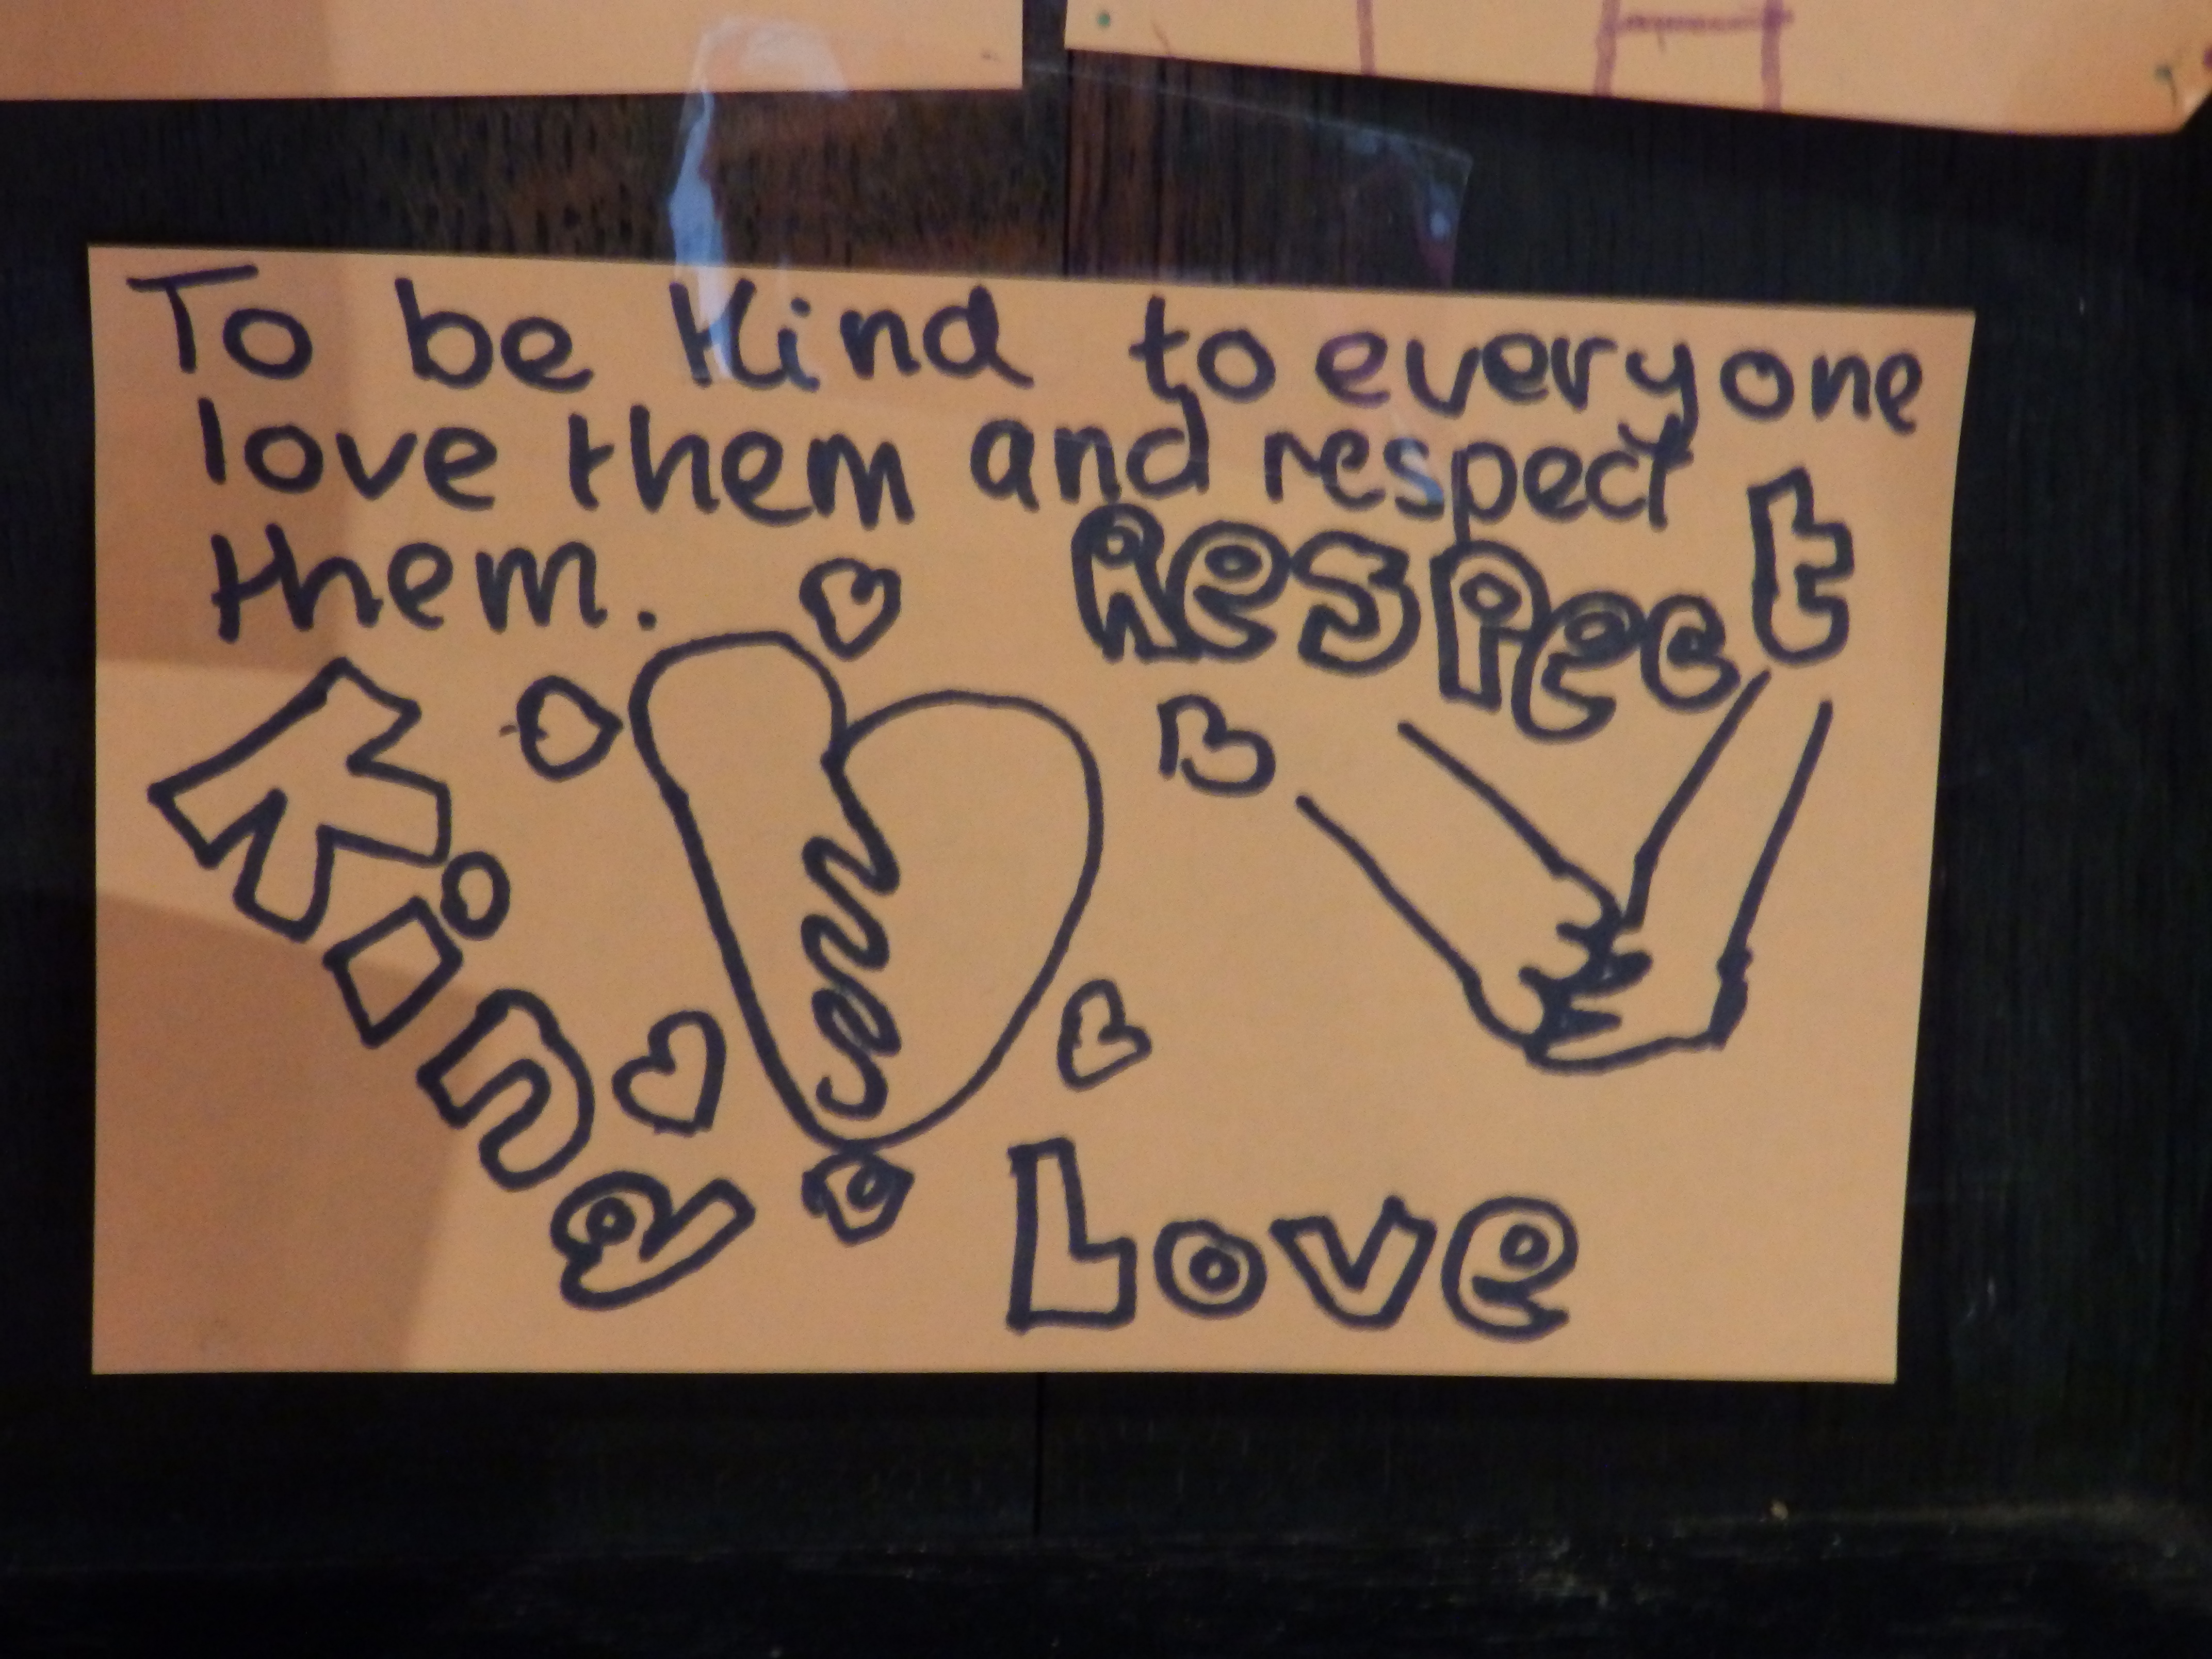 To be kind to everyone
love them and respect
them.
Respect
Kind
Love